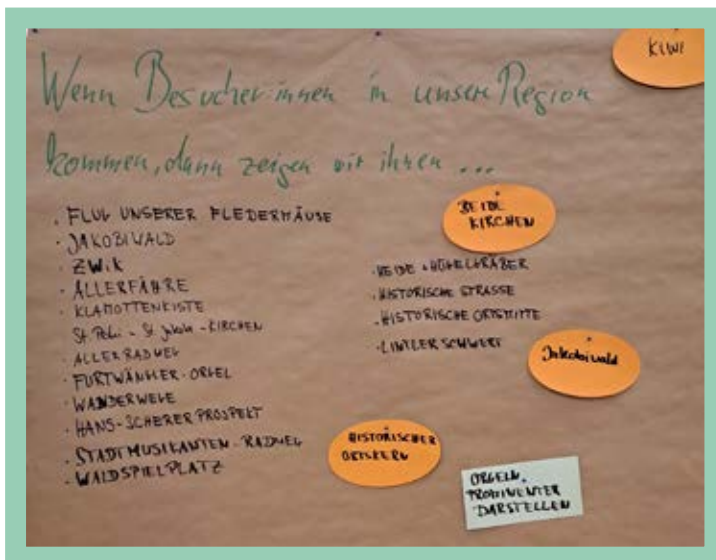 KIWI
Wenn Besucher:innen in unsere Region
kommen, dann zeigen wir ihnen ...
· FLUG UNSERER FLEDERMÄUSE
· JAKOBIWALD
· ZWIK
· ALLERFÄHRE
· KLAMOTTENKISTE
St. Petri - St. Jakobi - KIRCHEN
· ALLERRADWEG
· FURTWÄNGLER-ORGEL
· WANDERWEGE
· HANS-SCHERER PROSPEKT
· STADTMUSIKANTEN-RADWEG
· WALDSPIELPLATZ
BEIDE
KIRCHEN
· HEIDE + HÜGELGRÄBER
· HISTORISCHE STRASSE
· HISTORISCHE ORTSMITTE
· LINTLER SCHWERT
Jakobiwald
HISTORISCHER
ORTSKERN
ORGELN
PROMINENTER
DARSTELLEN